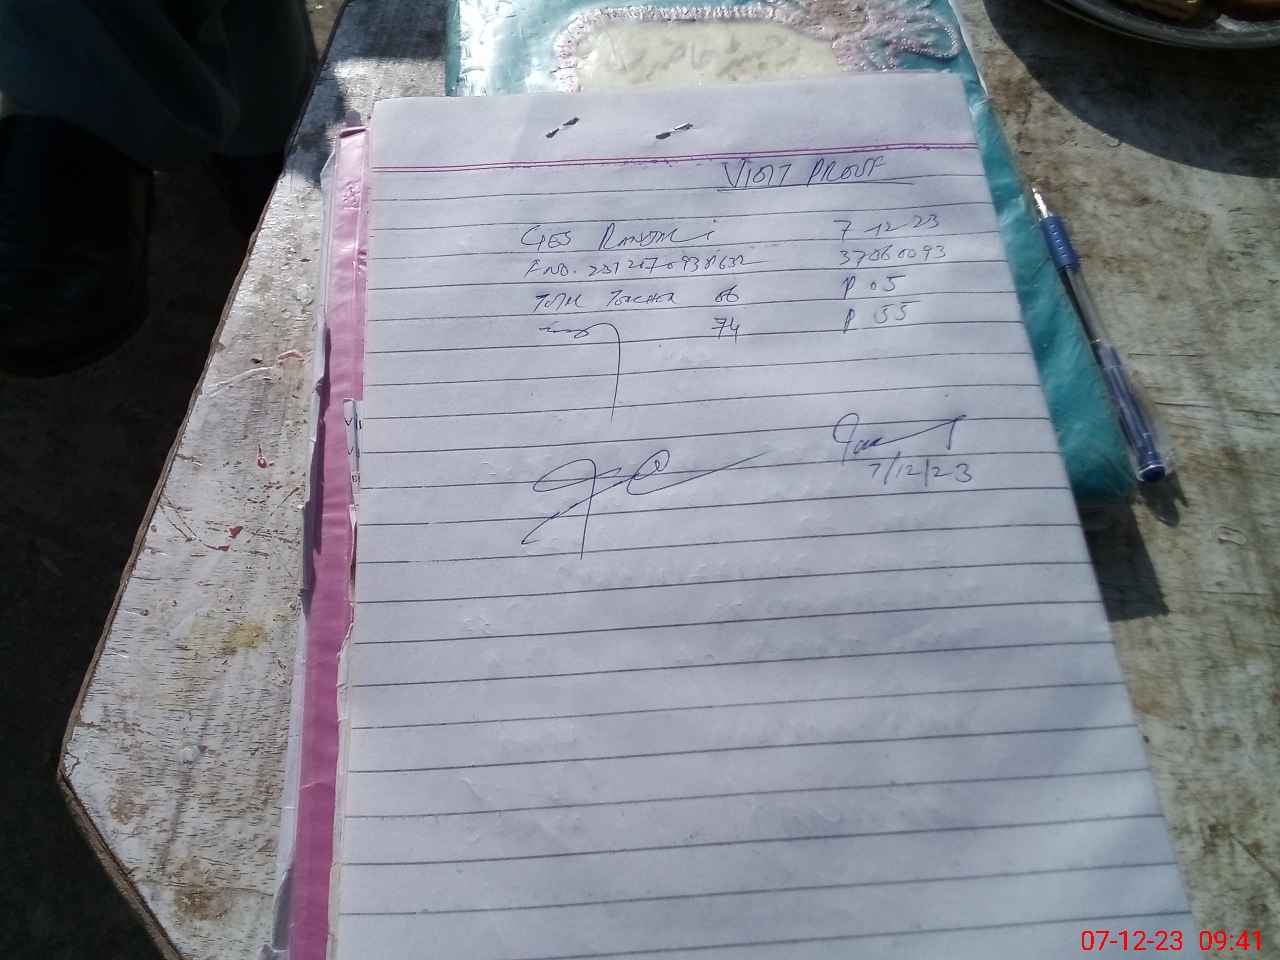 VISIT PROOF
GES 7-12-23
F NO. 37060093
TOTAL TEACHER 06 P 05
74 P 55
7/12/23
07-12-23 09:41